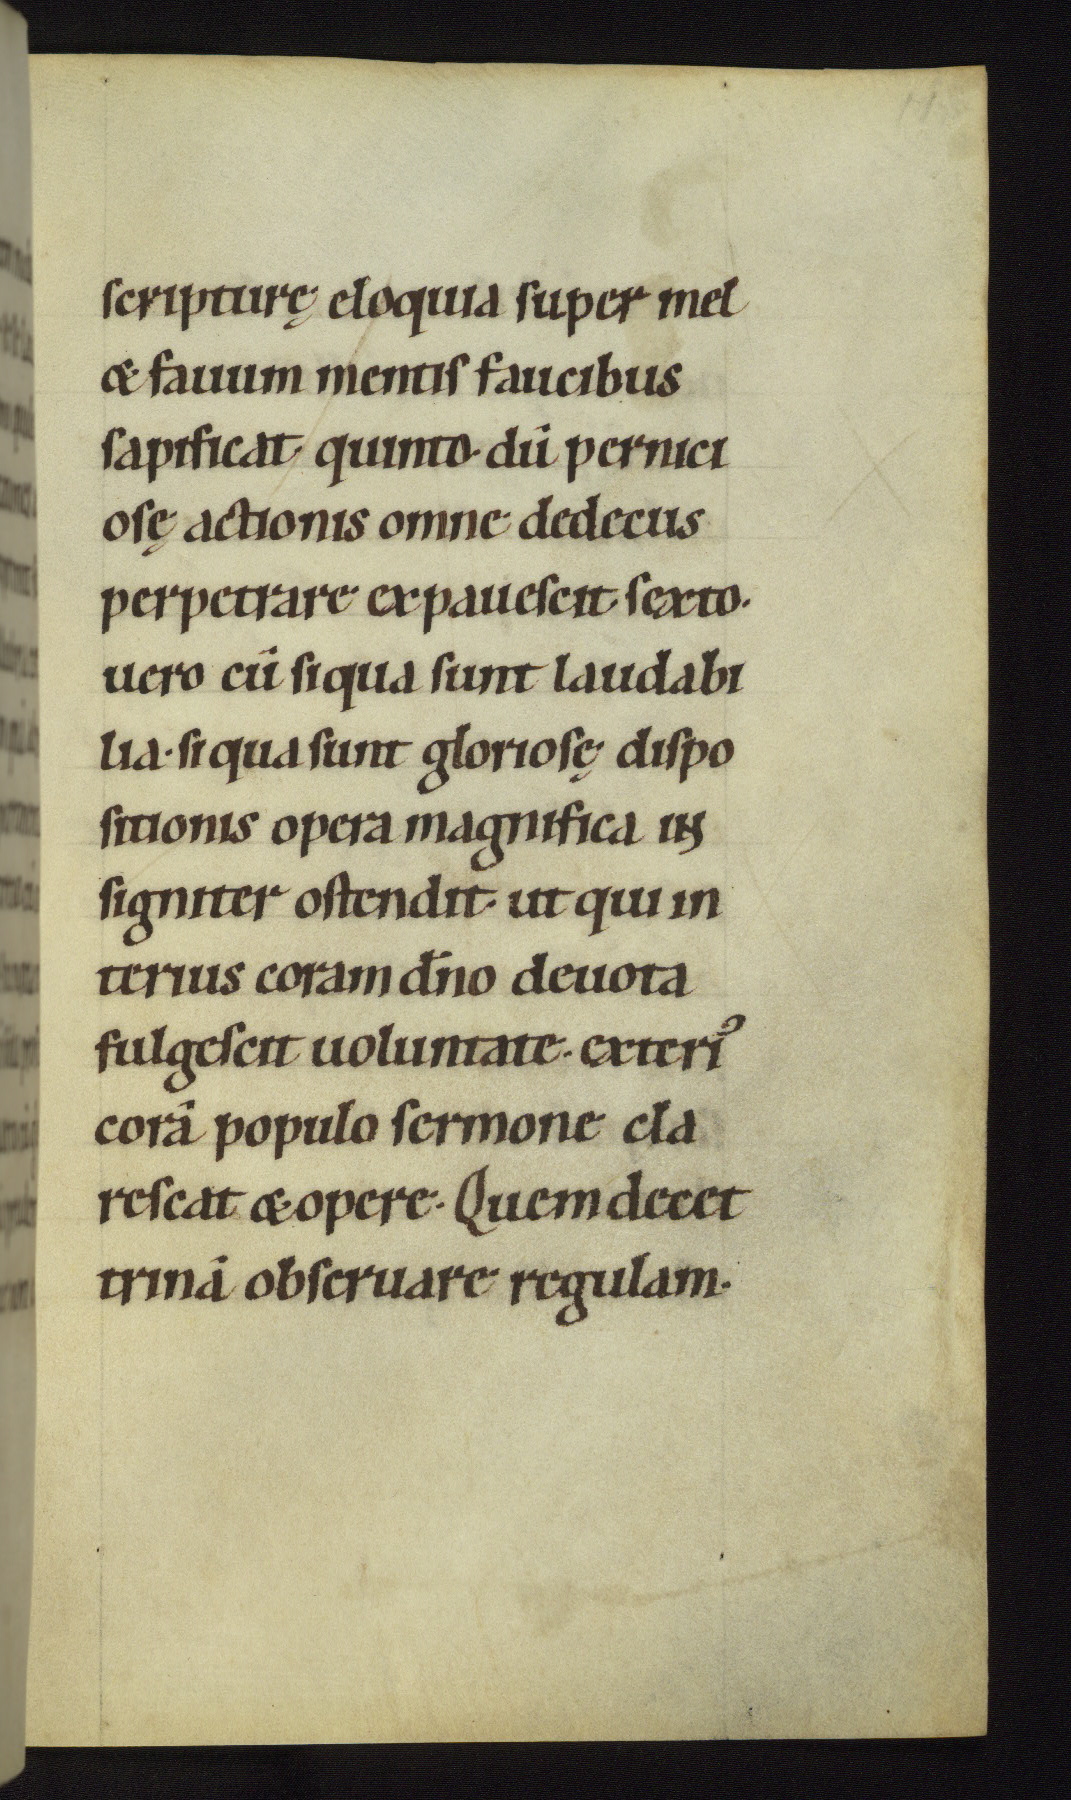 scripturę eloquia super mel
& fauum mentis faucibus
sapificat· quinto· dū pernici
osę actionis omne dedecus
perpetrare expauescit· sexto·
uero cū siqua sunt laudabi
lia· si qua sunt gloriosę dispo
sitionis opera magnifica in
signiter ostendit· ut qui in
terius coram dn̄o deuota
fulgescit uoluntate· exteriꝰ
corā populo sermone cla
rescat & opere· Quem decet
trinā obseruare regulam·